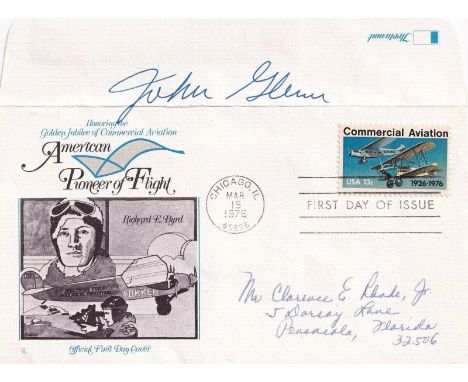 Fleetwood
John Glenn
Honoring the
Golden Jubilee of Commercial Aviation
American
Pioneer of Flight
Richard E. Byrd
FOKKER
Official First Day Cover
CHICAGO, IL
MAR
19
1976
60606
Commercial Aviation
USA 13c
1926-1976
FIRST DAY OF ISSUE
Mr. Clarence E. Rhode, Jr.
5 Dorsay Lane
Pensacola, Florida
32506